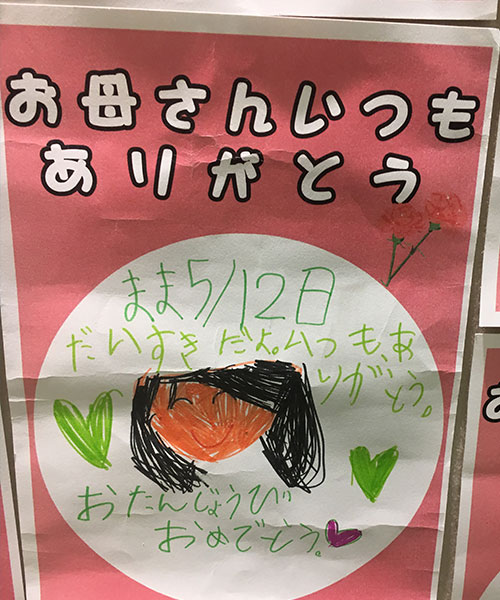 お母さんいつも
ありがとう
まま5/12日
だいすきだよ。いつも、あ
りがとう。
おたんじょうび
おめでとう。